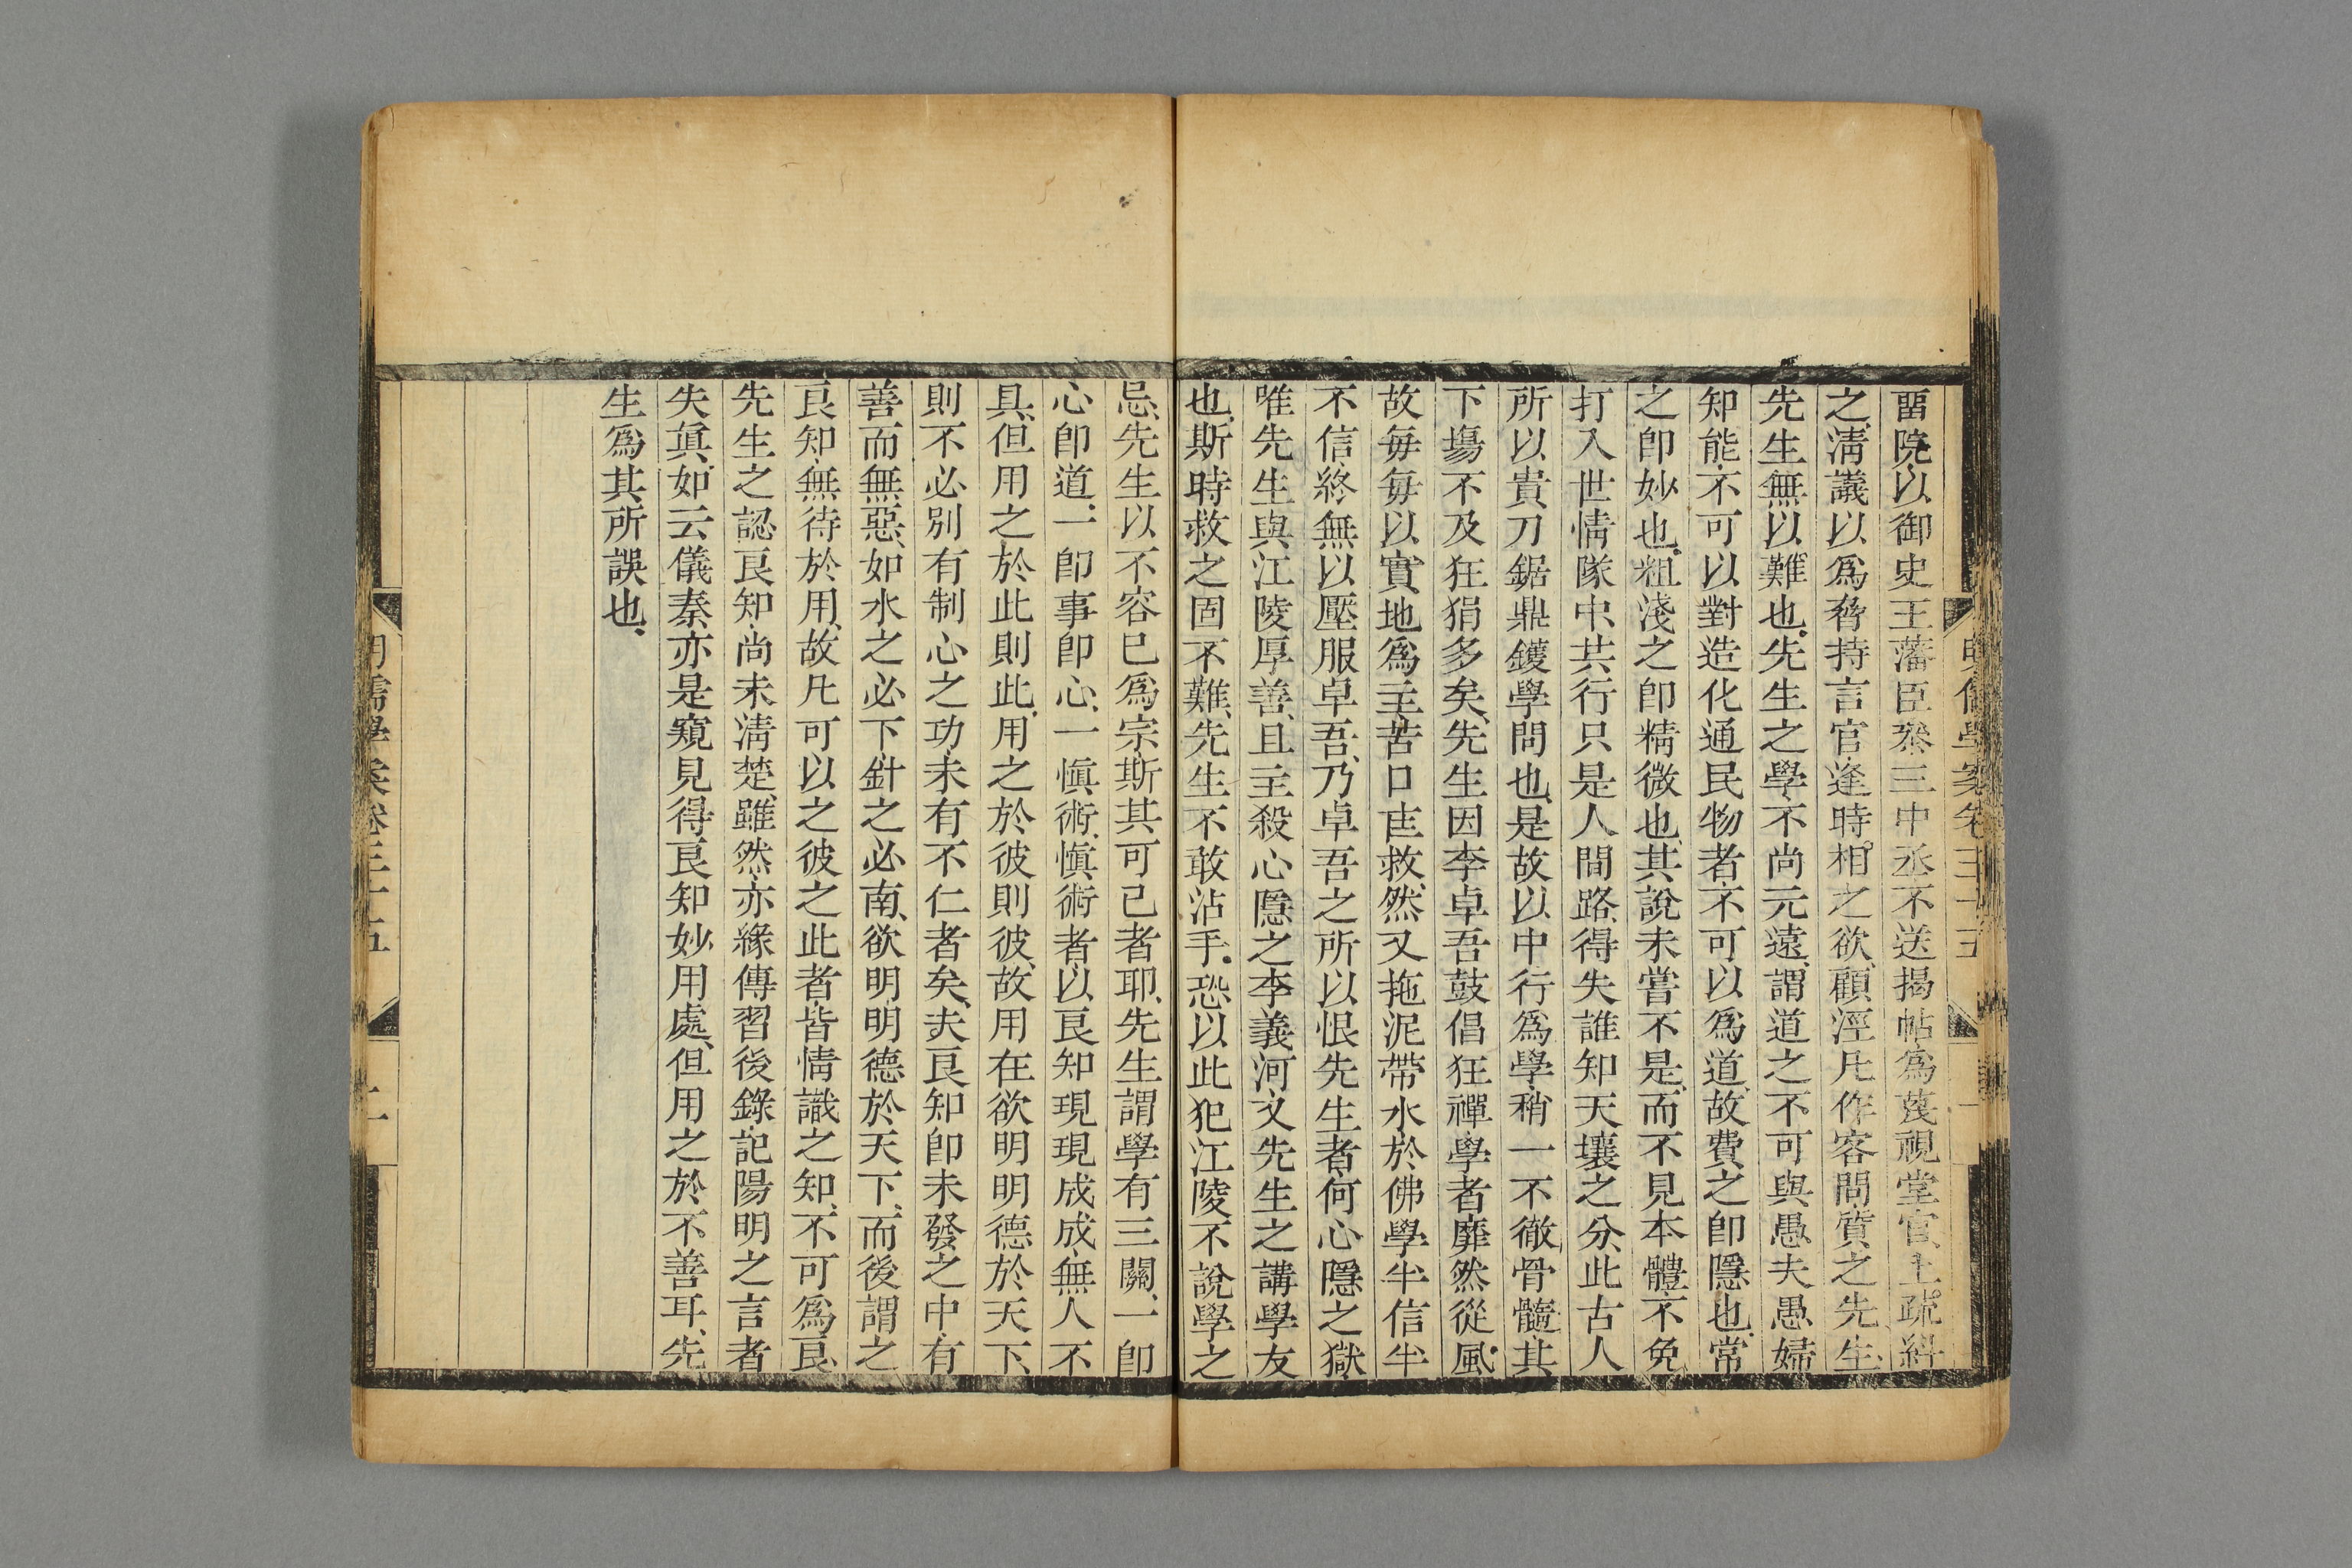 留院以御史王藩臣參三中丞不送揭帖為蔑視堂官上疏糾
之清議以為脅持言官逢時相之欲顧涇凡作客問質之先生
先生無以難也先生之學不尚元遠謂道之不可與愚夫愚婦
知能不可以對造化通民物者不可以為道故費之卽隱也常
之卽妙也粗淺之卽精微也其說未嘗不是而不見本體不免
打入世情隊中共行只是人間路得失誰知天壤之分此古人
所以貴刀鋸鼎鑊學問也是故以中行為學稍一不徹骨髓其
下塲不及狂狷多矣先生因李卓吾鼓倡狂禪學者靡然從風
故每每以實地為主苦口匡救然又拖泥帶水於佛學半信半
不信終無以壓服卓吾乃卓吾之所以恨先生者何心隱之獄
唯先生與江陵厚善且主殺心隱之李義河又先生之講學友
也斯時救之固不難先生不敢沾手恐以此犯江陵不說學之
忌先生以不容已為宗斯其可已者耶先生謂學有三關一卽
心卽道一卽事卽心一慎術慎術者以良知現現成成無人不
具但用之於此則此用之於彼則彼故用在欲明明德於天下
則不必別有制心之功未有不仁者矣夫良知卽未發之中有
善而無惡如水之必下針之必南欲明明德於天下而後謂之
良知無待於用故凡可以之彼之此者皆情識之知不可為良
先生之認良知尚未清楚雖然亦緣傳習後錄記陽明之言者
失眞如云儀秦亦是窺見得良知妙用處但用之於不善耳先
生為其所誤也
明儒學案卷三十五
二